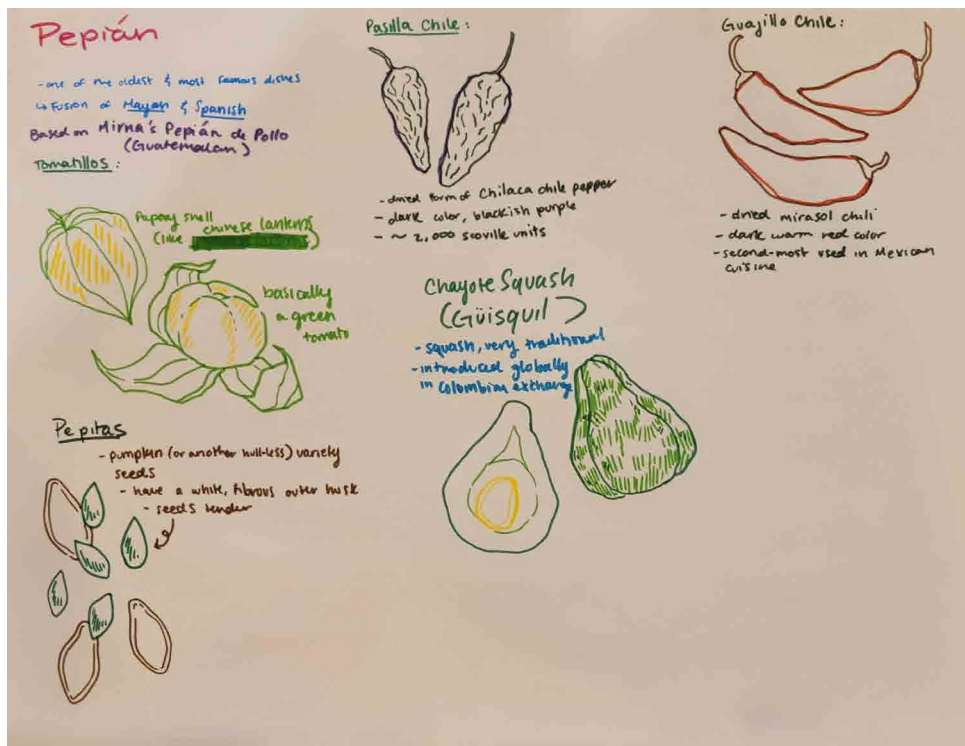 Pepián
- one of the oldest & most famous dishes
↳ Fusion of Mayan & Spanish
Based on Mirna's Pepián de Pollo
(Guatemalan)
Tomatillos:
Papery shell
(like chinese lanterns)
basically
a green
tomato
Pepitas
- pumpkin (or another hull-less) variety
seeds
- have a white, fibrous outer husk
- seeds tender
Pasilla Chile:
- dried form of Chilaca chile pepper
- dark color, blackish purple
- ~ 2,000 scoville units
Chayote Squash
(Güisquil)
- squash, very traditional
- introduced globally
in Colombian exchange
Guajillo Chile:
- dried mirasol chili
- dark warm red color
- second-most used in Mexican
cuisine